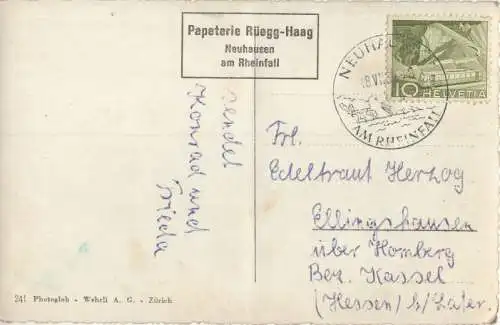 Papeterie Rüegg-Haag
Neuhausen
am Rheinfall
NEUHAUSEN
18.VI.
AM RHEINFALL
10 HELVETIA
sendet
Konrad und
Frieda
Frl.
Edeltraut Herzog
Ellingshausen
über Homberg
Bez. Kassel
(Hessen)
241 Photoglob - Wehrli A. G. - Zürich